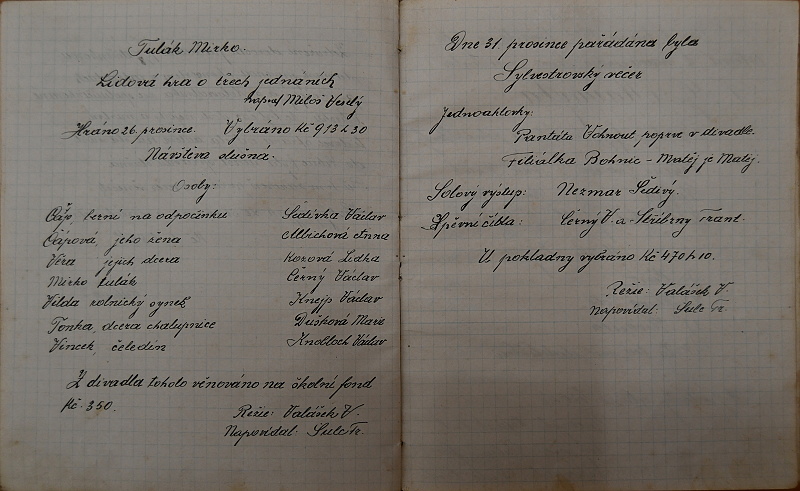 Tulák Mirko.
Lidová hra o třech jednáních
napsal Miloš Veselý
Hráno 26. prosince. Vybráno Kč 913 h 30
Návštěva slušná.
Osoby:
Čáp, berní na odpočinku Šedivka Václav
Čápová, jeho žena Albichová Anna
Věra jejich dcera Kozová Lidka
Mirko tulák Černý Václav
Vilda rolnický synek Knejp Václav
Tonka, dcera chalupnice Dušková Marie
Vincek, čeledín Knobloch Václav
Z divadla tohoto věnováno na školní fond
Kč 350.
Režie: Valášek V.
Napovídal: Sulc Fr.
Dne 31. prosince pořádána byla
Sylvestrovský večer
Jednoaktovky:
Pantáta Vohnout poprve v divadle.
Filiálka Bohnic – Matěj je Matěj.
Solový výstup: Nezmar Šedivý.
Zpěvní čísla: Černý V. a Stříbrný Frant.
U pokladny vybráno Kč 470 h 10.
Režie: Valášek V.
Napovídal: Sulc Fr.